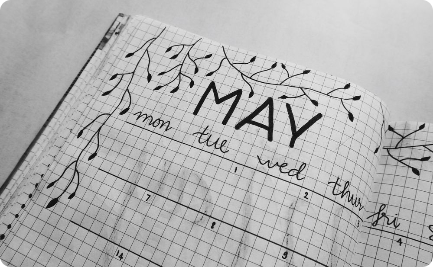 MAY
mon tue wed thur fri
1 2 4
7 8 9
14